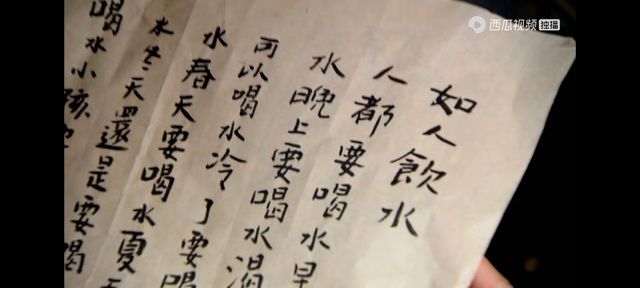 西瓜视频 独播
如人飲水
人都要喝水早
水晚上要喝水渴
可以喝水冷了要喝
水春天要喝水夏天
水冬天還是要喝
喝水小孩